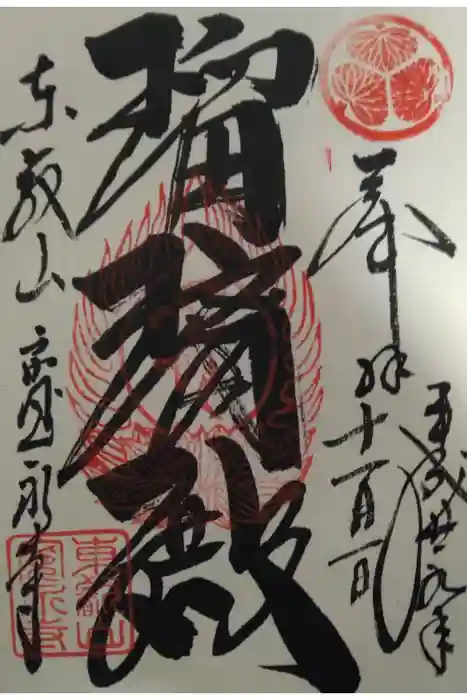 奉拝
平成廿九年
十一月一日
瑠璃殿
東叡山 寛永寺
東叡山
寛永寺